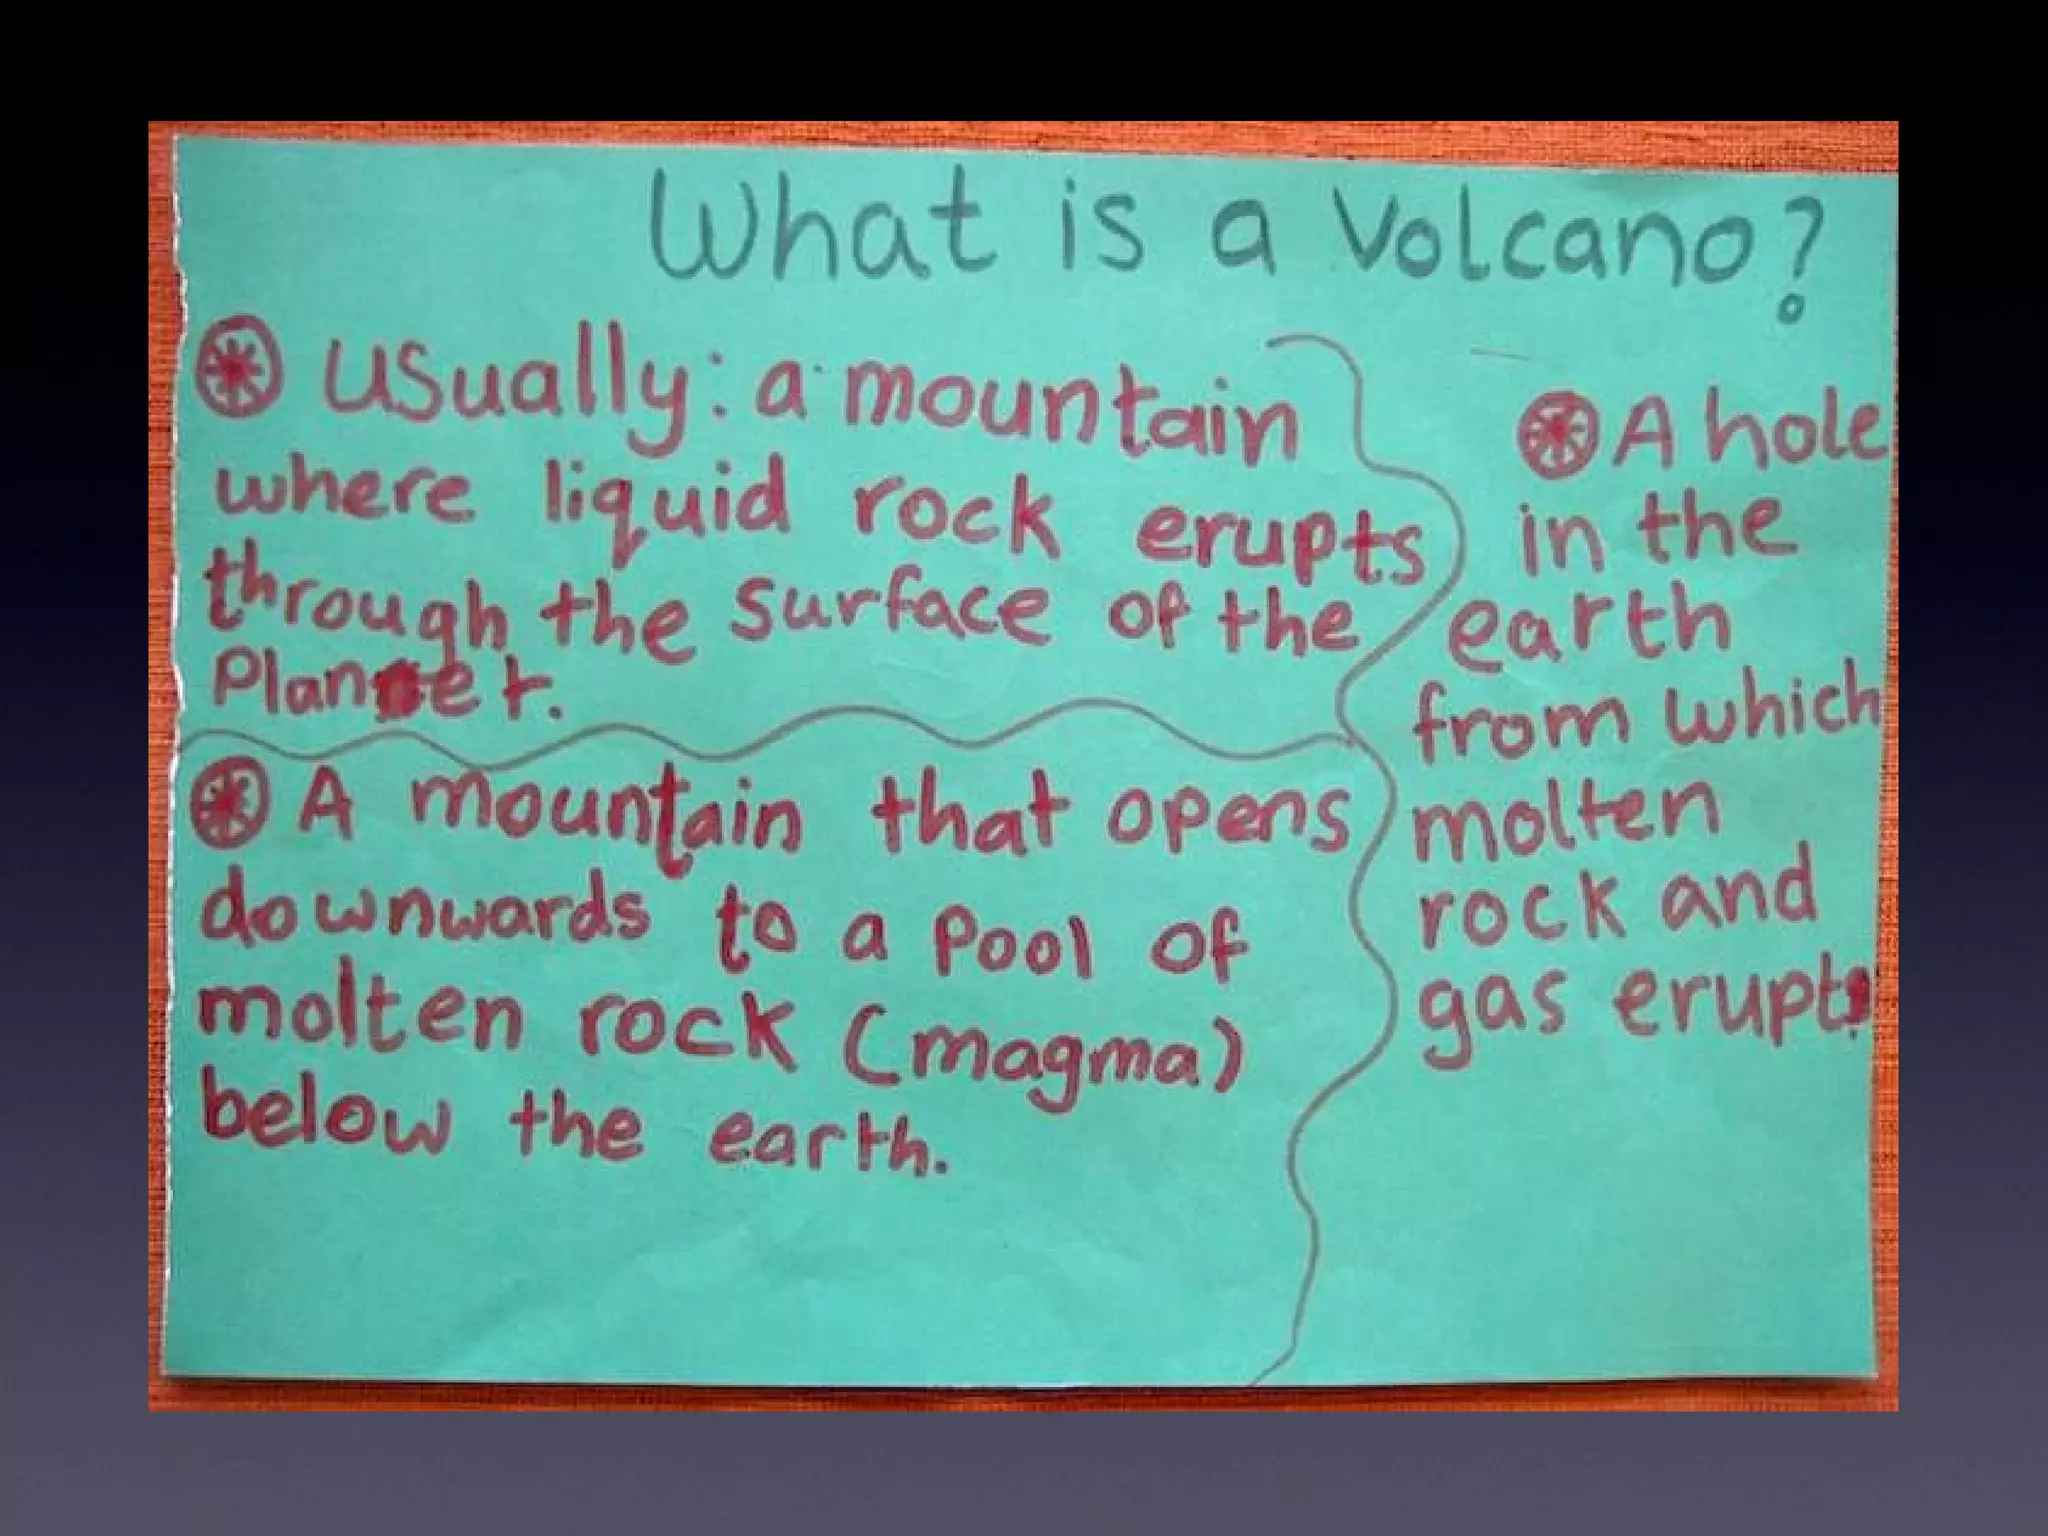 What is a Volcano?
Usually: a mountain
where liquid rock erupts
through the surface of the
Planet.
A mountain that opens
downwards to a Pool of
molten rock (magma)
below the earth.
A hole
in the
earth
from which
molten
rock and
gas erupts